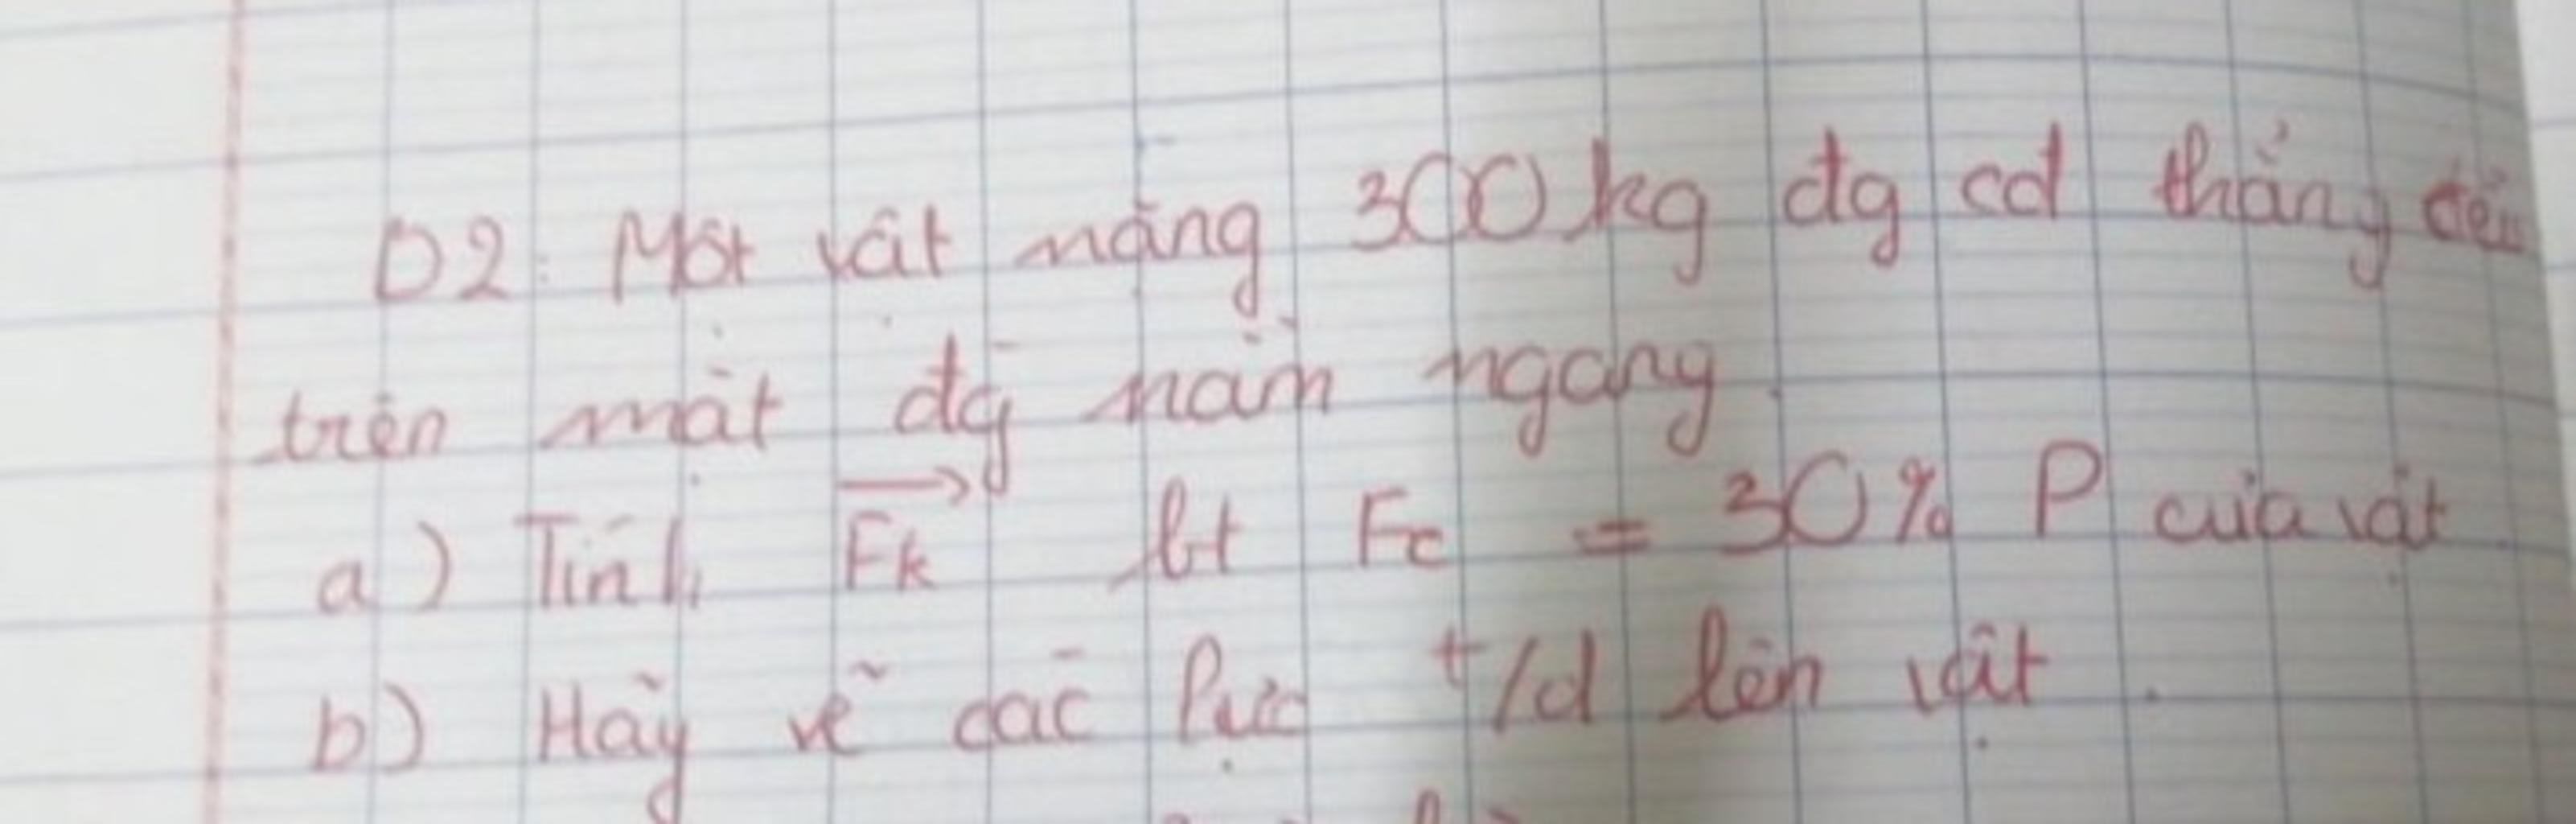 D2: Một vật nặng 300 kg đg cđ thẳng đều
trên mặt đg nằm ngang.
a) Tính Fk bt Fc = 30% P của vật
b) Hãy vẽ các lực t/d lên vật.